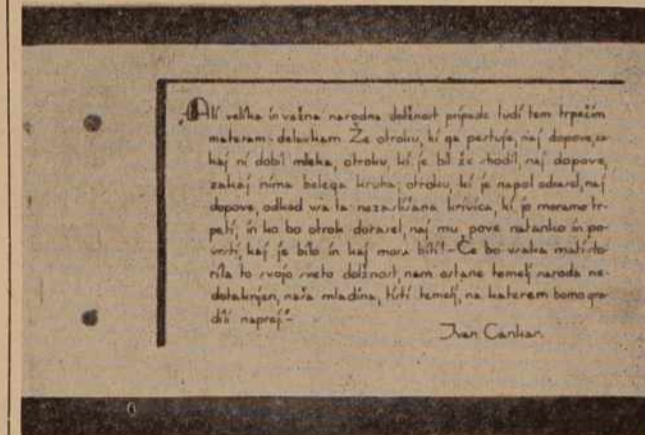 „Ali velika in važna narodna dolžnost pripada tudi tem trpečim
materam-delavkam. Že otroku, ki ga pestuje, naj dopove, za-
kaj ni dobil mleka, otroku, ki je bil že shodil, naj dopove,
zakaj nima belega kruha; otroku, ki je napol odrasel, naj
dopove, odkod vsa ta nezaslišana krivica, ki jo moramo tr-
peti, in ko bo otrok dorasel, naj mu pove natanko in po
vrsti, kaj je bilo in kaj mora biti! - Če bo vsaka mati sto-
rila to svojo sveto dolžnost, nam ostane temelj naroda ne-
dotaknjen, naša mladina, tisti temelj, na katerem bomo gra-
dili naprej.“
Ivan Cankar.